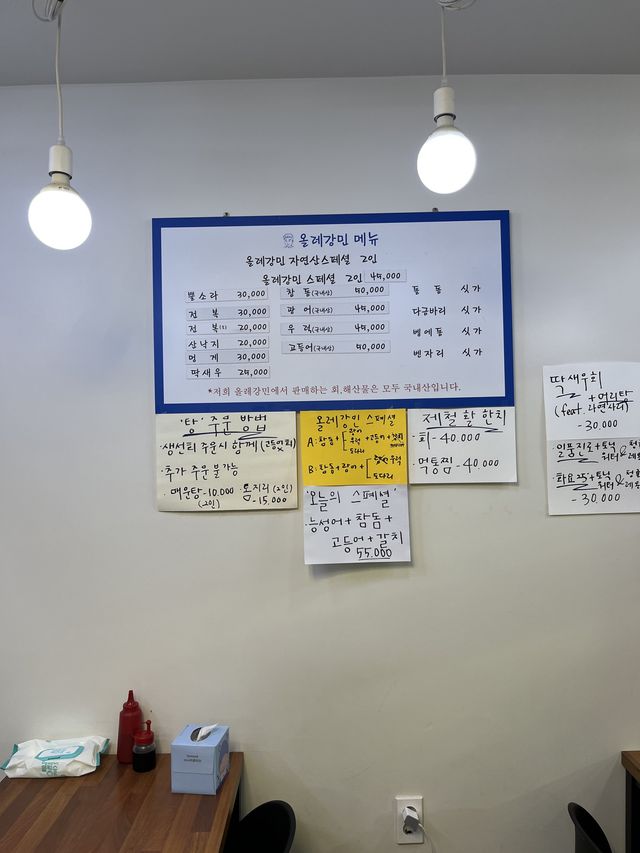 올레강민 메뉴
올레강민 자연산스페셜 2인
올레강민 스페셜 2인
뿔소라 30,000
전복 30,000
전복 20,000
산낙지 20,000
멍게 30,000
딱새우
참돔(국내산)
광어(국내산)
우럭(국내산)
고등어(국내산)
돌돔 싯가
다금바리 싯가
벵에돔 싯가
벤자리 싯가
*저희 올레강민에서 판매하는 회,해산물은 모두 국내산입니다.
'탕' 주문 방법
·생선회 주문시 함께
·추가 주문 불가능
·매운탕-10,000
(2인)
·옴지리 (2인)
-15,000
올레강민 스페셜
A:참돔+
광어
우럭
도다리
+고등어+
B:참돔+광어+
우럭
도다리
'오늘의 스페셜'
·능성어+참돔+
고등어+갈치
55,000
제철 활 한치
·회-40,000
·먹통찜-40,000
딱새우회
+머리탕
(feat. 라면사리)
-30,000
일품진로+토닉
워터&
화요25+토닉
워터&
-30,000